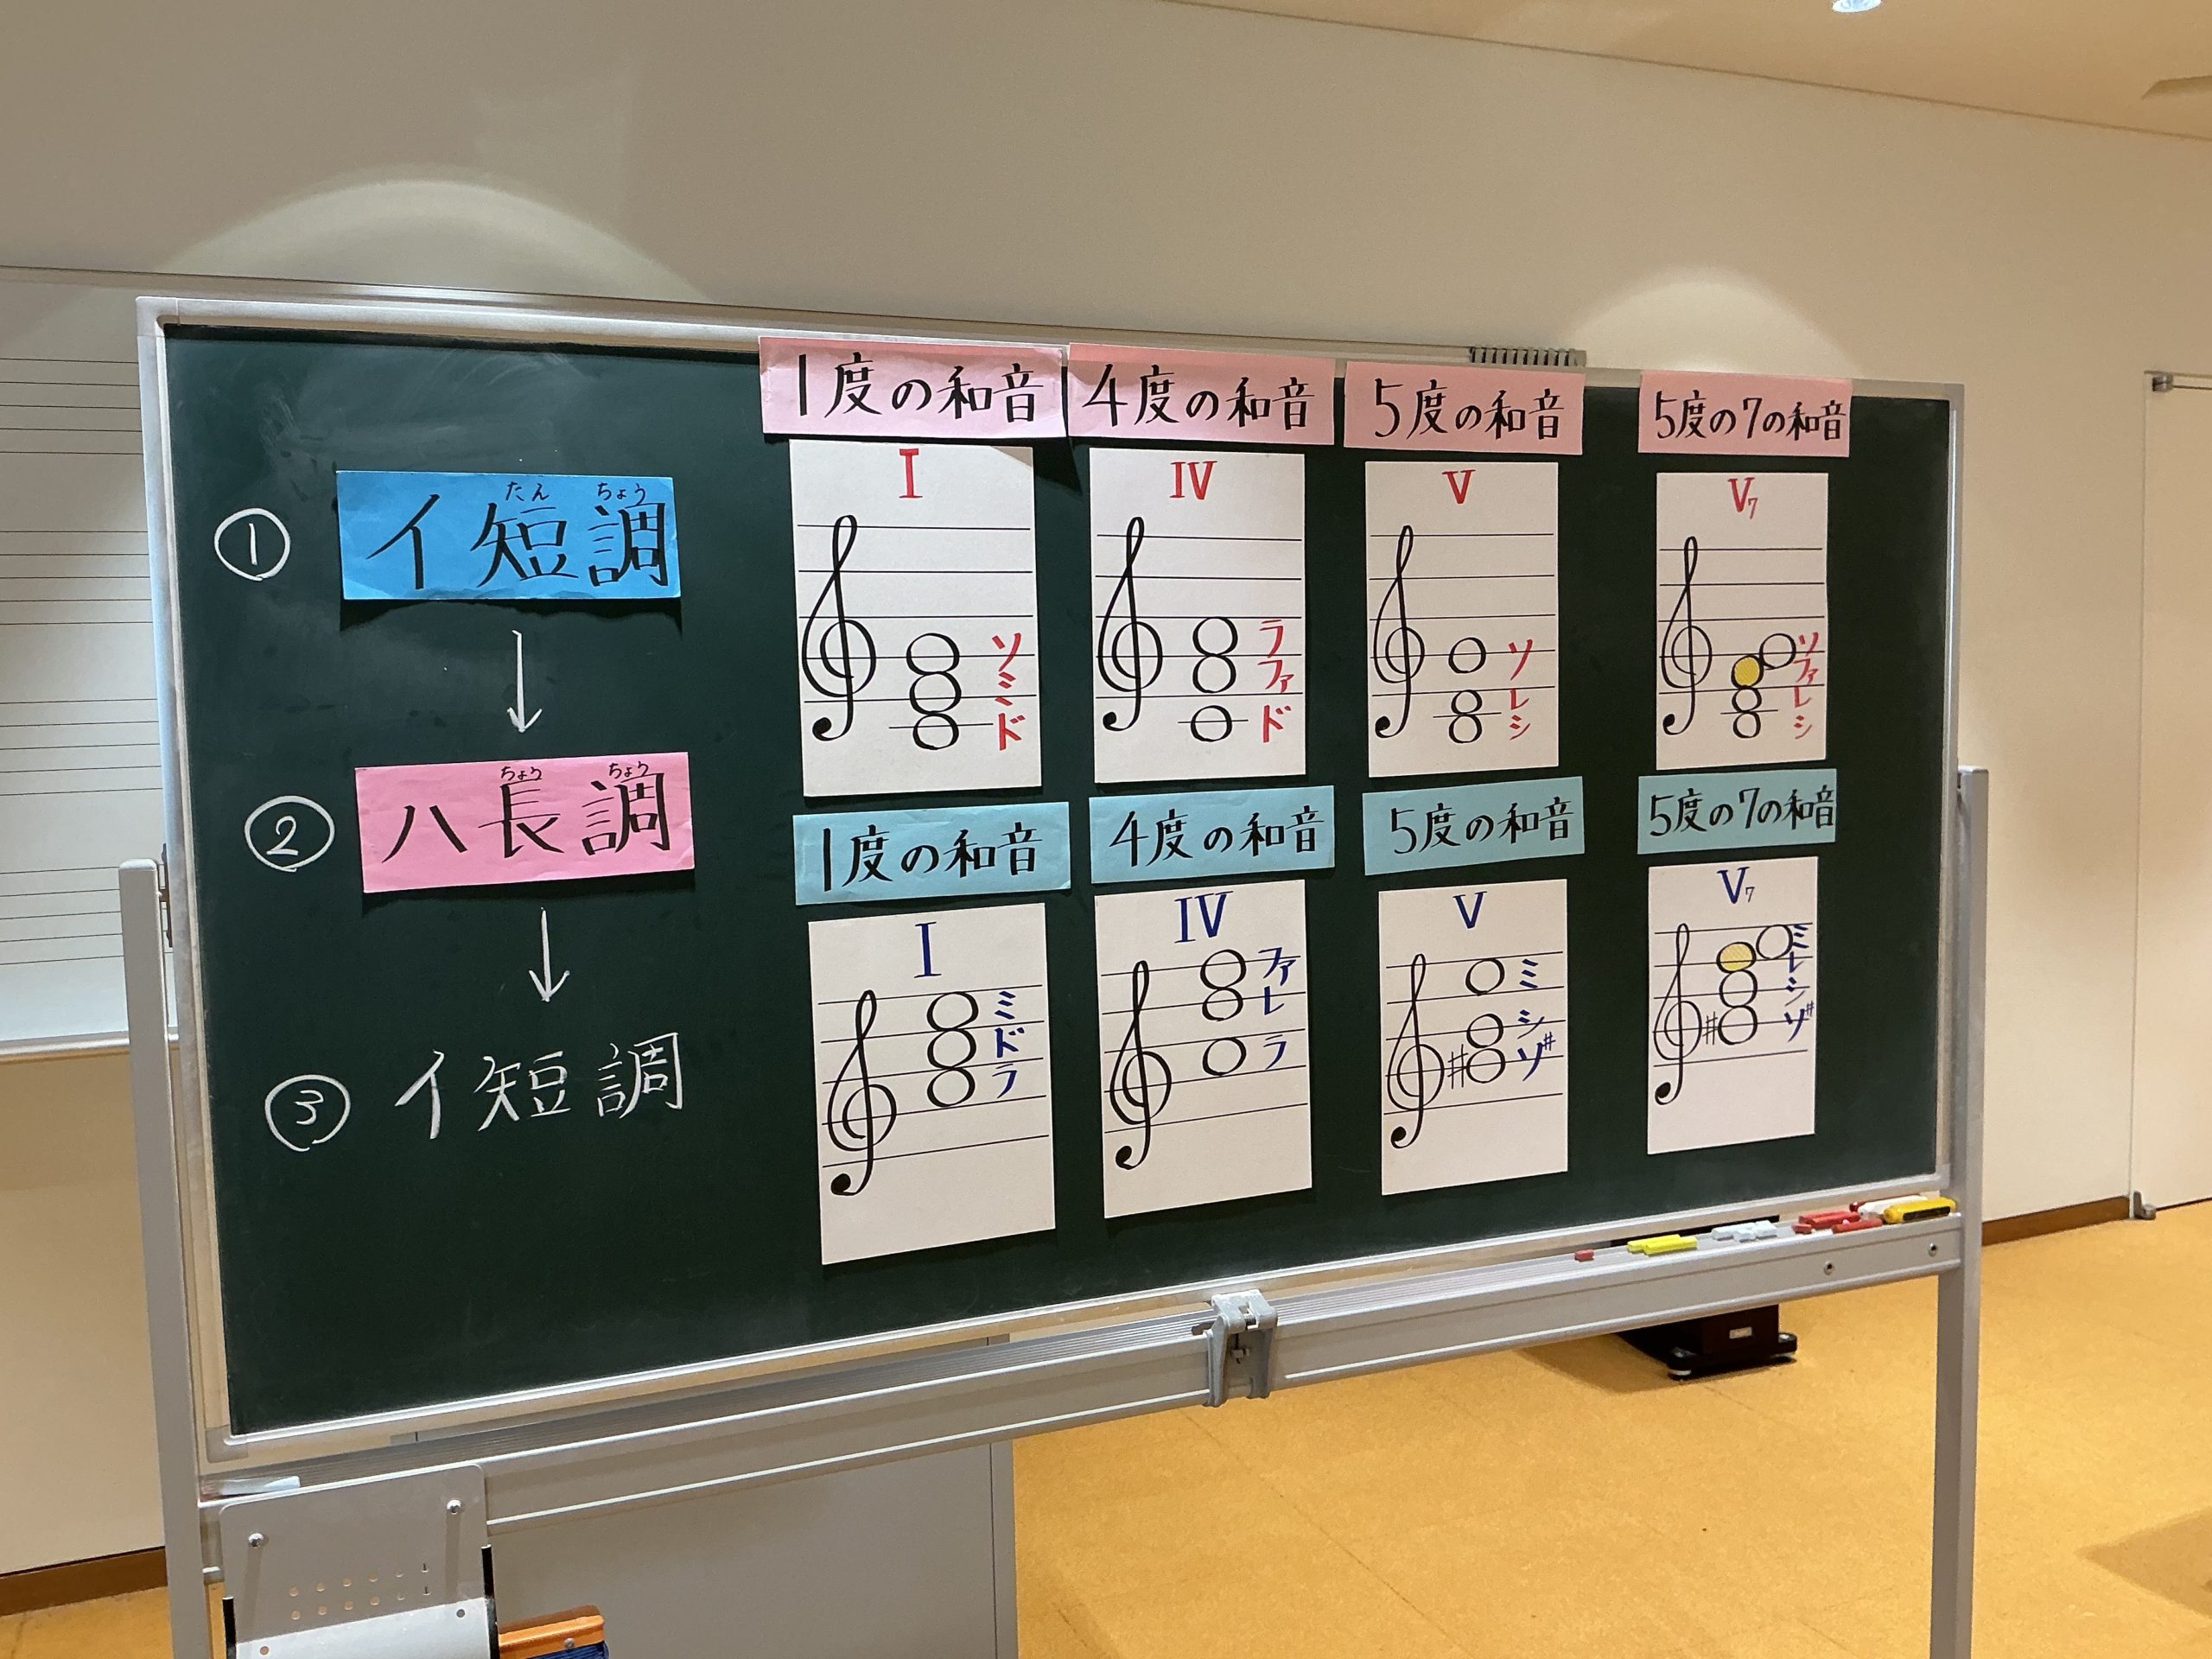 1度の和音
4度の和音
5度の和音
5度の7の和音
I
IV
V
V7
ソ
ミ
ド
ラ
ファ
ド
ソ
レ
シ
ソ
ファ
レ
シ
① イ短調
たん ちょう
② ハ長調
ちょう ちょう
③ イ短調
1度の和音
4度の和音
5度の和音
5度の7の和音
I
IV
V
V7
ミ
ド
ラ
ファ
レ
ラ
ミ
シ
ソ#
ミ
レ
シ
ソ#